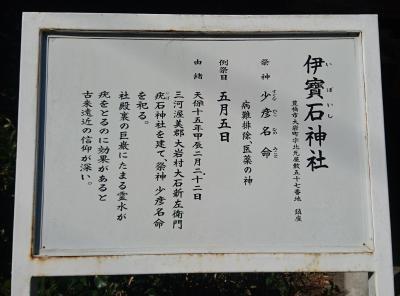 伊寳石神社
いぼいし
豊橋市大岩町字北元屋敷五十七番地 鎮座
祭神 少彦名命
すくなひこなのみこと
病難排除、医薬の神
例祭日 五月五日
由緒 天保十五年甲辰二月二十二日
三河渥美郡大岩村大石新左衛門
疣石神社を建て、祭神 少彦名命
を祀る。
社殿裏の巨巌にたまる霊水が
疣をとるのに効果があると
古来遠近の信仰が深い。